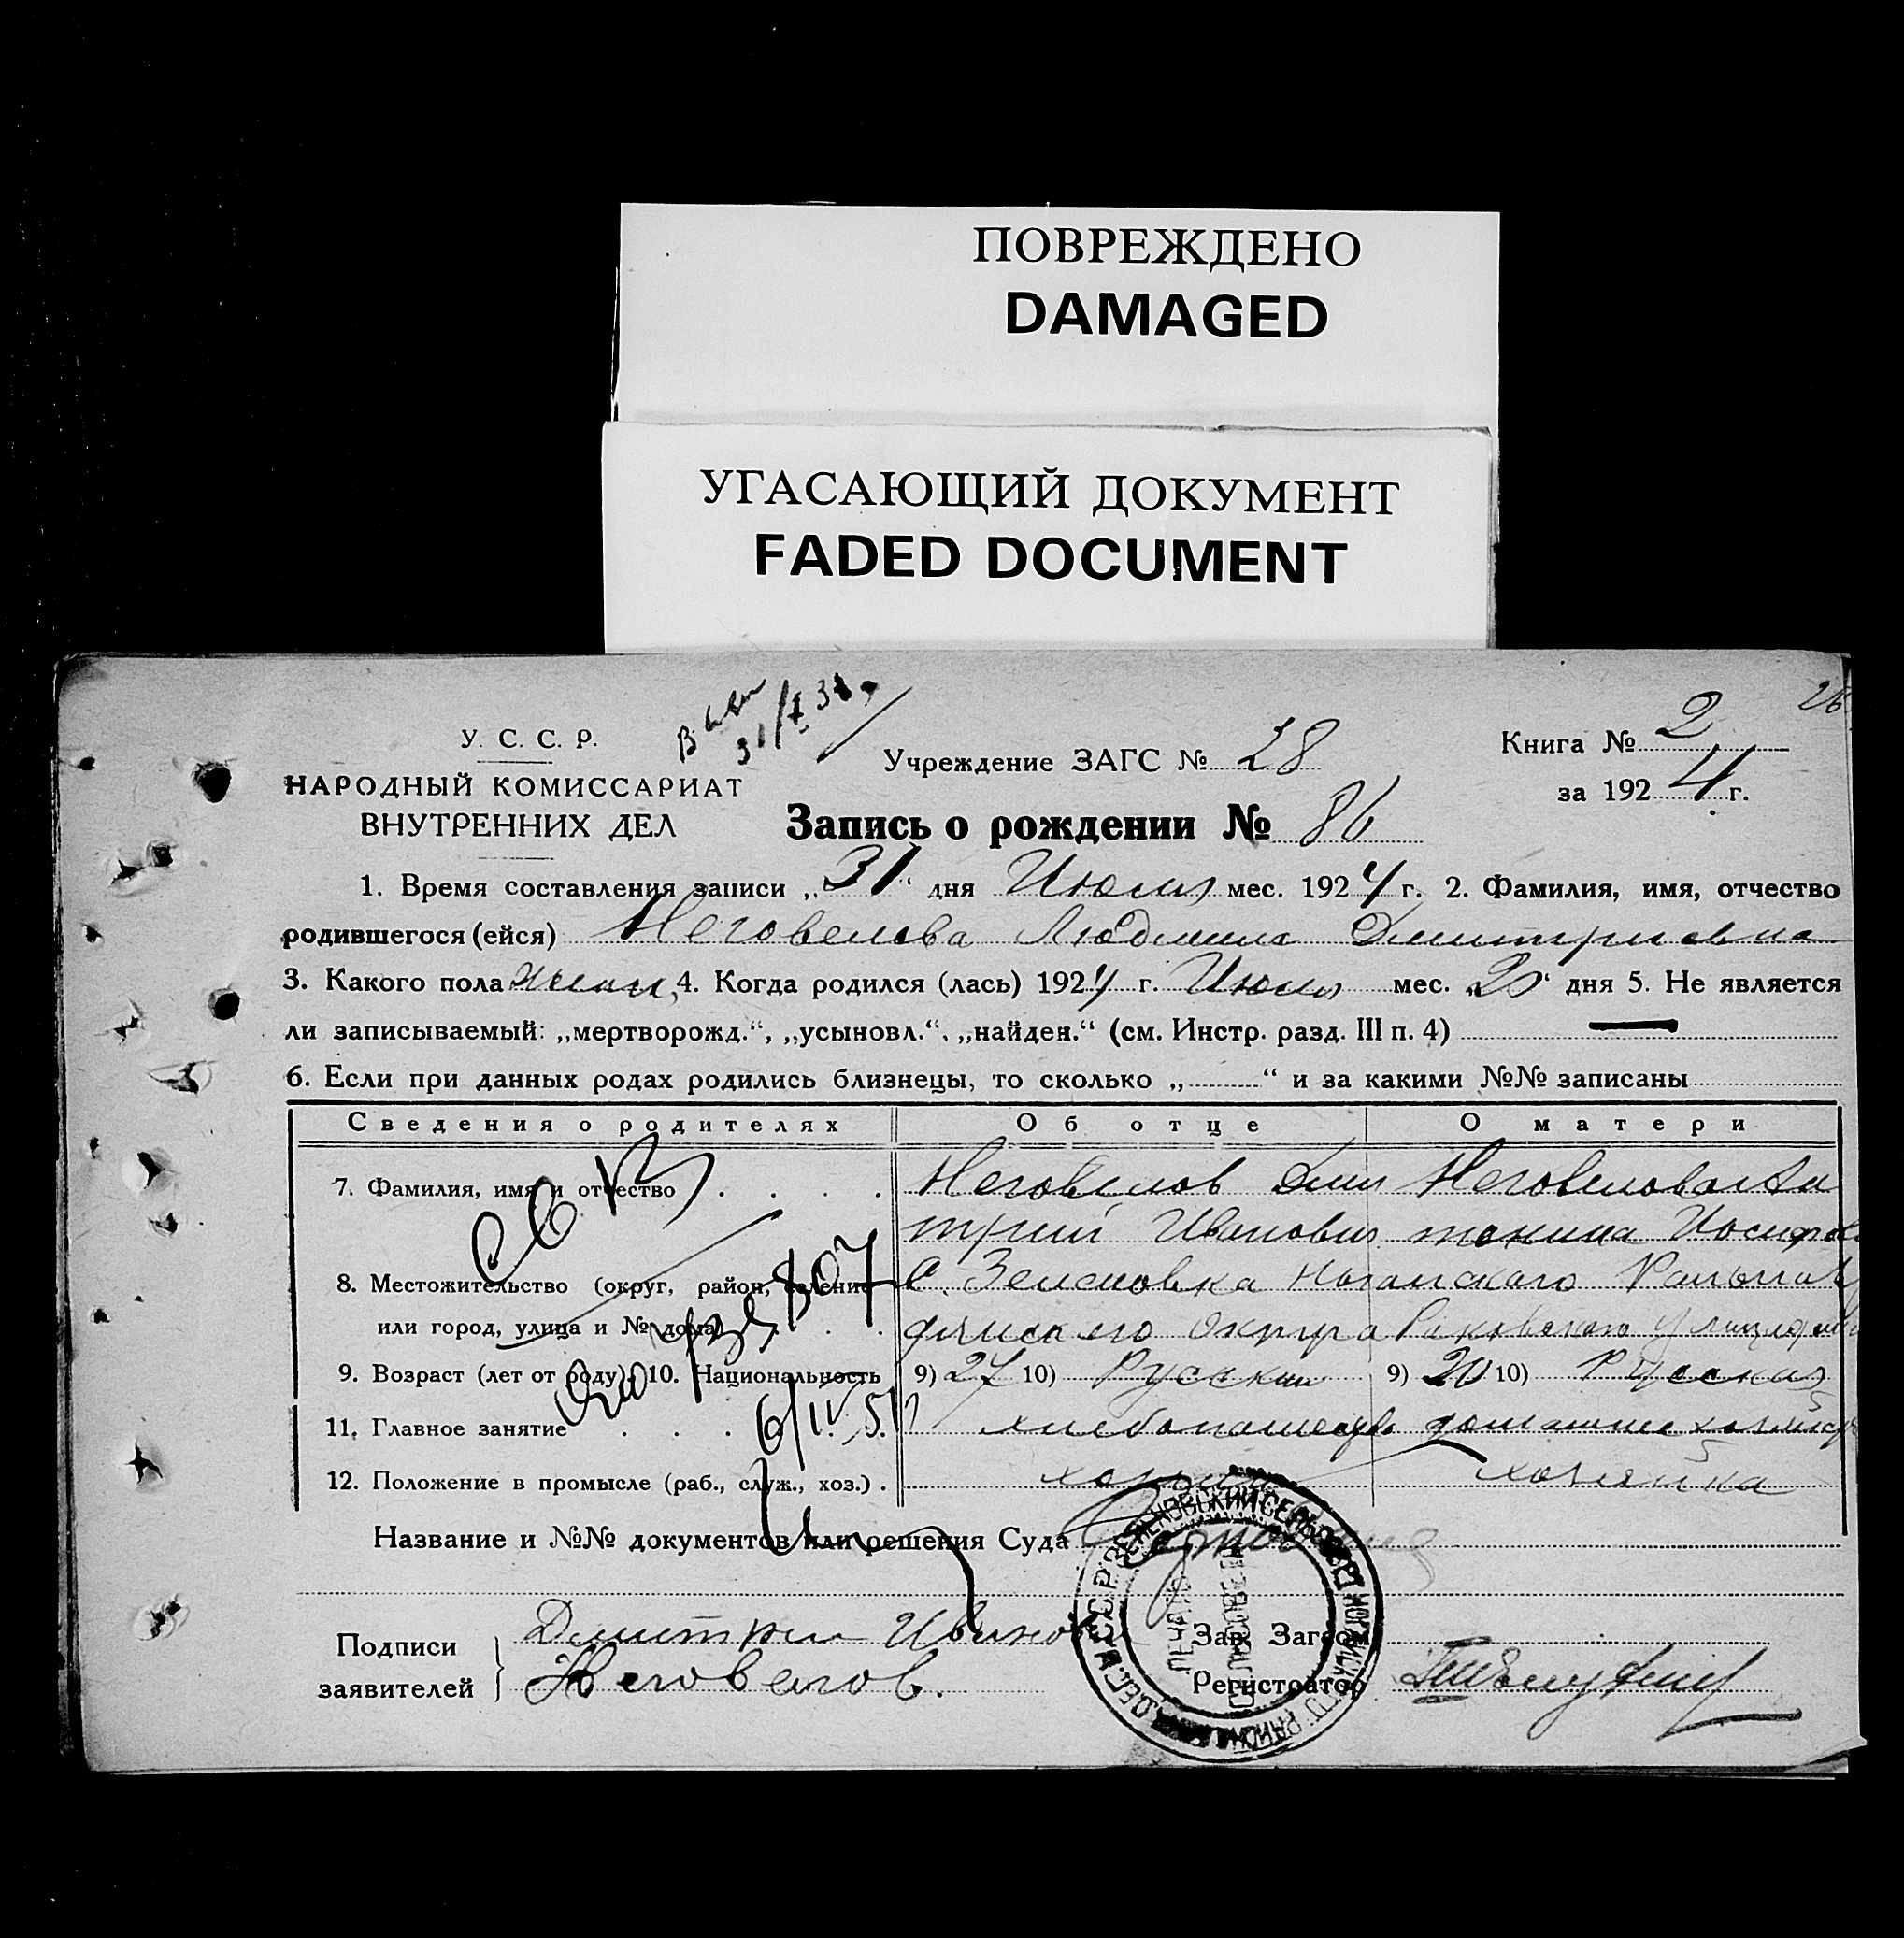 ПОВРЕЖДЕНО
DAMAGED
УГАСАЮЩИЙ ДОКУМЕНТ
FADED DOCUMENT
26
У. С. С. Р.
НАРОДНЫЙ КОМИССАРИАТ
ВНУТРЕННИХ ДЕЛ
Учреждение ЗАГС № 28
Книга № 2
за 1924 г.
Запись о рождении № 86
1. Время составления записи „31“ дня Июля мес. 1924 г. 2. Фамилия, имя, отчество
родившегося (ейся) Неговелова Людмила Дмитриевна
3. Какого пола жен. 4. Когда родился (лась) 1924 г. Июля мес. „“ дня 5. Не является
ли записываемый: „мертворожд.“, „усыновл.“, „найден.“ (см. Инстр. разд. III п. 4) —
6. Если при данных родах родились близнецы, то сколько „“ и за какими №№ записаны
Сведения о родителях Об отце О матери
7. Фамилия, имя и отчество . . . . Неговелов Дми Неговелова Ан
трий Иванович тонина Иосифов
8. Местожительство (округ, район, селение С. Зеленовка Ногайского
или город, улица и № дома) . . . округа
9. Возраст (лет от роду) 10. Национальность 9) 27 10) Русский 9) 20 10) Русская
11. Главное занятие . . . . хлебопашество домашнее
12. Положение в промысле (раб., служ., хоз.) . хозяйка
6/IV 51
Название и №№ документов или решения Суда
Подписи заявителей } Дмитрий Иванов
Неговелов.
Зав. Загсом
Регистратор